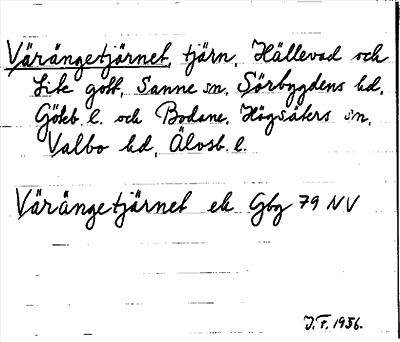 Värängetjärnet, tjärn, Hällevad och
Lite gott, Sanne sn, Sörbygdens hd,
Göteb. l. och Bodane, Högsäters sn,
Valbo hd, Älvsb. l.
Värängetjärnet ek Gbg 79 NV
J. F. 1956.